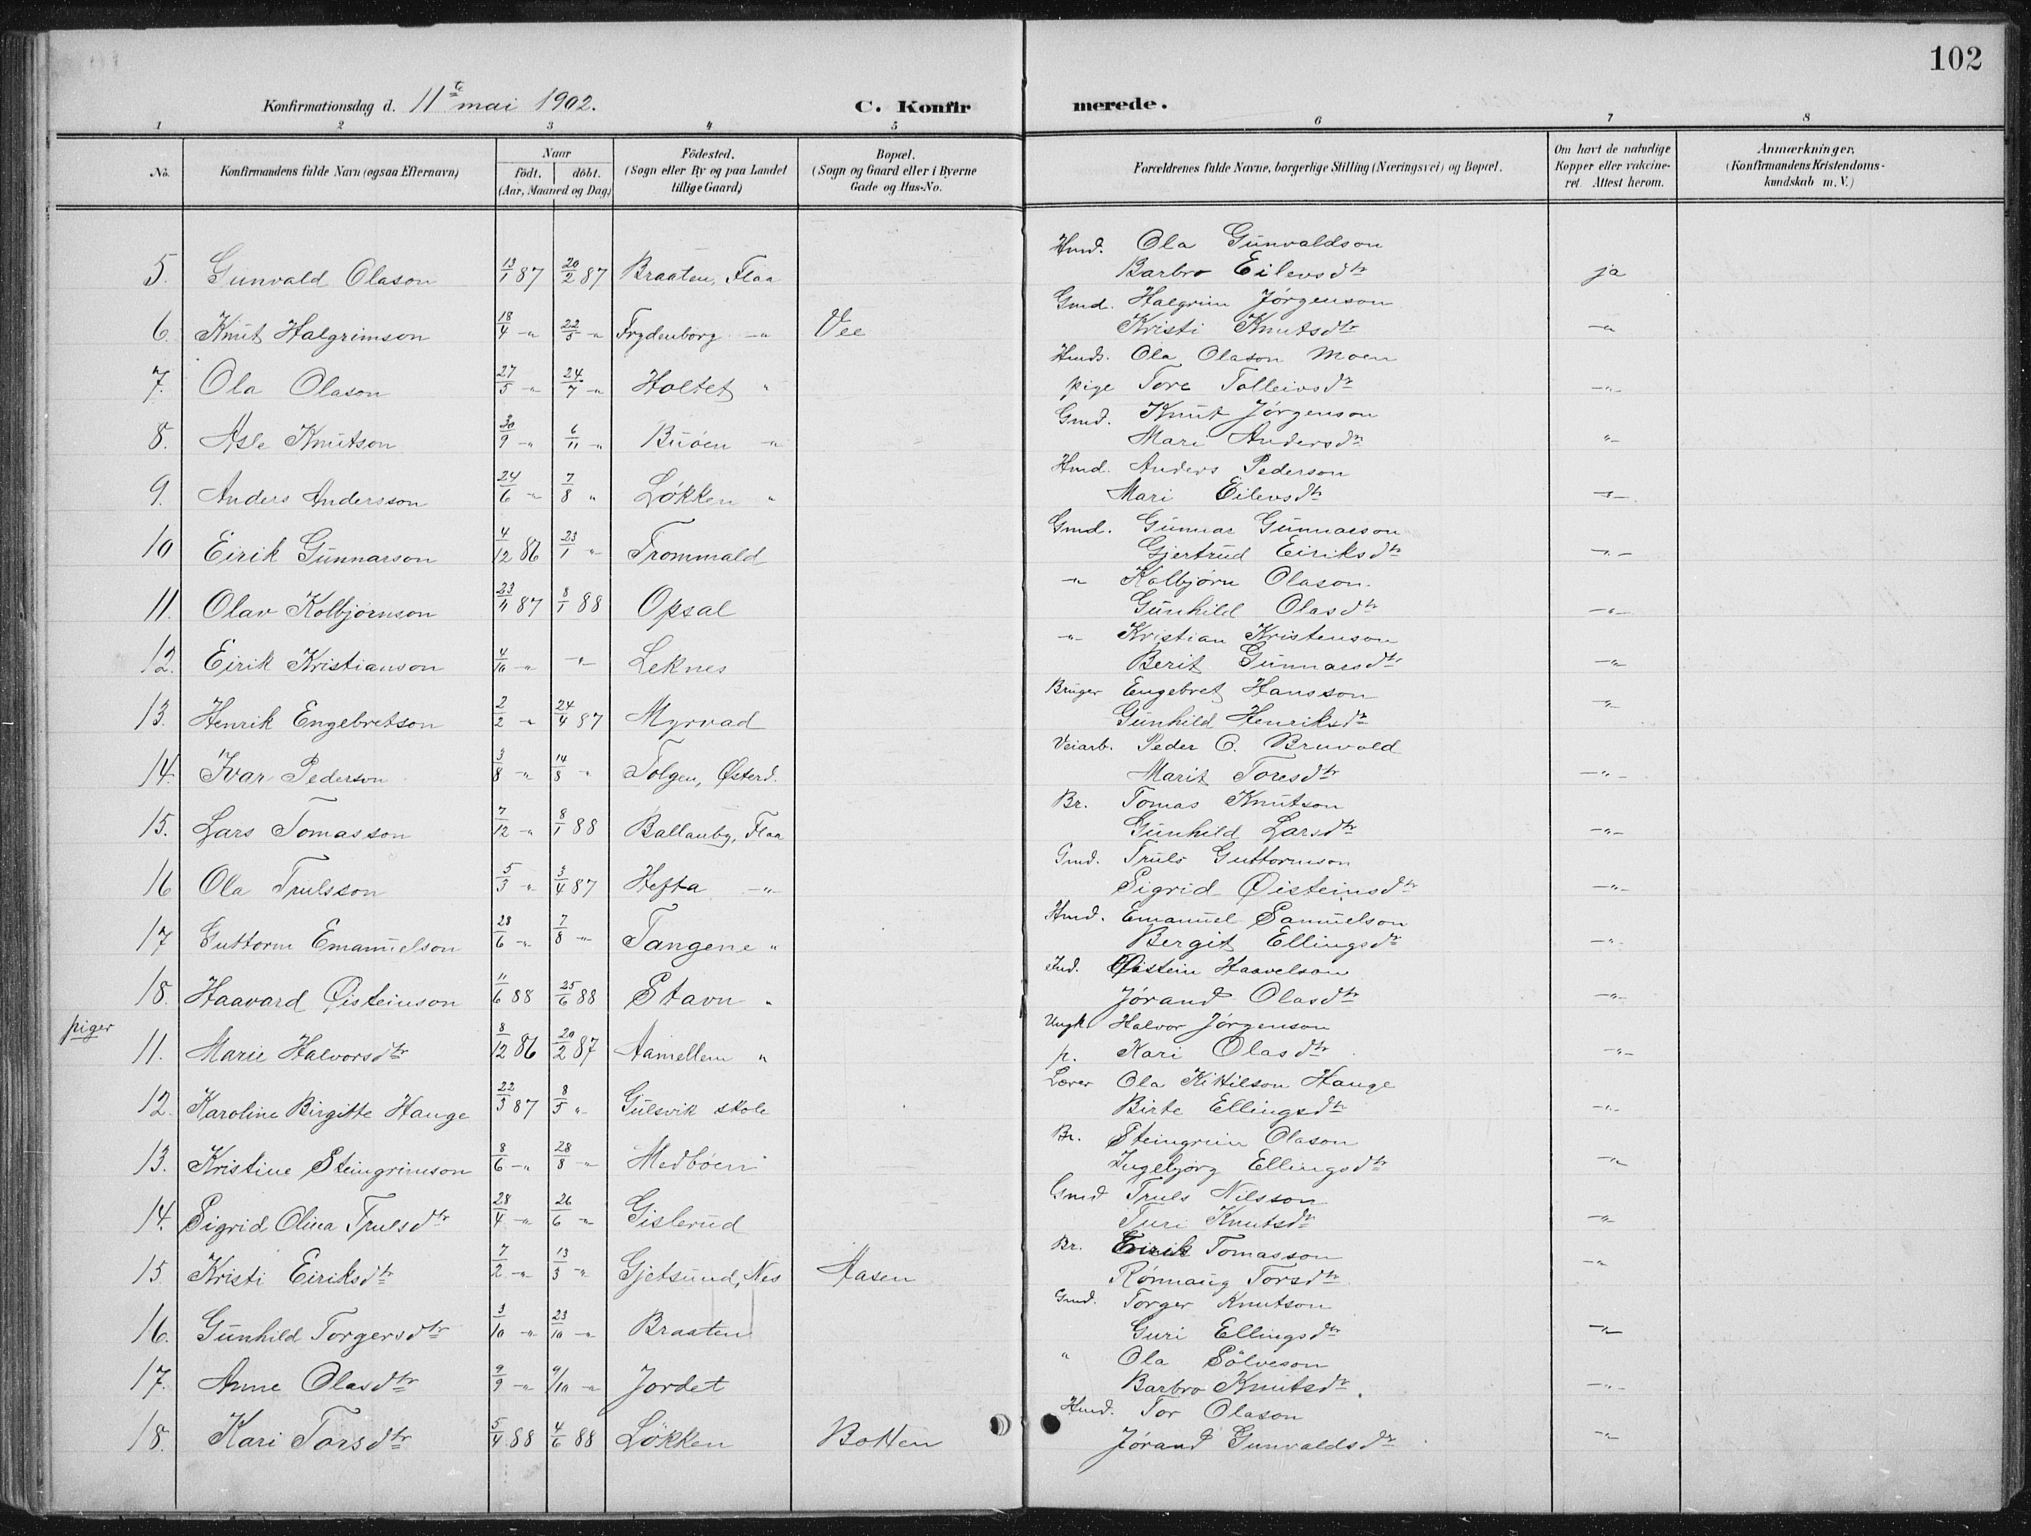 102
Konfirmationsdag d. 11te mai 1902. C. Konfirmerede.
1 2 3 4 5 6 7 8
No. Konfirmandens fulde Navn (ogsaa Efternavn) Naar født. døbt. (Aar, Maaned og Dag) Fødested. (Sogn eller By og paa Landet tillige Gaard) Bopæl. (Sogn og Gaard eller i Byerne Gade og Hus-No. Forældrenes fulde Navne, borgerlige Stilling (Næringsvei) og Bopæl. Om havt de naturlige Kopper eller vakcineret. Attest herom. Anmærkninger. (Konfirmandens Kristendomskundskab m. V.)
Hmd. Ola Gunvaldson
5. Gunvald Olason 13/1 87 20/2 87 Braaten, Flaa Barbro Eilevsdtr ja
Gmd. Halgrim Jørgenson
6. Knut Halgrimson 18/4 -"- 22/5 -"- Frydenborg -"- Vee Kristi Knutsdtr -"-
Hmds. Ola Olason Moen
7. Ola Olason 27/5 -"- 24/7 -"- Holtet " pige Tore Tolleivsdtr -"-
Gmd. Knut Jørgenson
8. Asle Knutson 30/9 -"- 6/11 -"- Buøen -"- Mari Andersdtr -"-
Hmd. Anders Pederson
9. Anders Andersson 24/6 -"- 7/8 " Løkken " Mari Eilevsdtr -"-
Gmd. Gunnar Gunnarson
10 Eirik Gunnarson 4/12 86 23/1 -"- Trommald Gjertrud Eiriksdtr -"-
-"- Kolbjørn Olason.
11. Olav Kolbjørnson 23/11 87 8/1 88 Opsal Gunhild Olasdtr -"-
-"- Kristian Kristenson
12. Eirik Kristianson 4/10 -"- -"- Leknes Berit Gunnarsdtr -"-
Bruger Engebret Hansson
13. Henrik Engebretson 2/2 -"- 24/4 87 Myrvad Gunhild Henriksdtr -"-
Veiarb. Peder O. Bruvold
14. Ivar Pederson 3/8 -"- 14/8 -"- Tolgen, Østerd. Marit Toresdtr -"-
Br. Tomas Knutson
15. Lars Tomasson 7/12 -"- 8/1 88 Ballauby, Flaa Gunhild Larsdtr -"-
Gmd. Truls Guttormson
16 Ola Trulsson 5/3 -"- 3/4 87 Hefta -"- Sigrid Øisteinsdtr -"-
Hmd. Emanuel Samuelson
17 Guttorm Emanuelson 28/6 -"- 7/8 -"- Tangene " Bergit Ellingsdtr -"-
Ind. Øistein Haavelson
18. Haavard Øisteinson 11/6 88 25/6 88 Stavn " Jørand Olasdtr -"-
piger
Ungk. Halvor Jørgenson
11. Marie Halvorsdtr 8/12 86 20/2 87 Aamellem " p. Kari Olasdtr -"-
Lærer Ola Kittilson Hauge
12. Karoline Birgitte Hauge 22/3 87 8/5 " Gulsvik skole Birte Ellingsdtr -"-
Br. Steingrim Olason
13. Kristine Steingrimson 8/6 -"- 28/8 -"- Medbøen Ingebjørg Ellingsdtr -"-
Gmd Truls Nilsson
14. Sigrid Olina Trulsdtr 28/4 -"- 26/6 -"- Gislerud Turi Knutsdtr -"-
Br. Eirik Tomasson
15. Kristi Eiriksdtr 7/2 -"- 13/3 -"- Gjetsund, Nes Aasen Rønnaug Torsdtr -"-
Gmd. Torger Knutson
16. Gunhild Torgersdtr 3/10 -"- 23/10 -"- Braaten Guri Ellingsdtr -"-
" Ola Sölveson
17. Anne Olasdtr 9/9 -"- 9/10 -"- Jordet Barbro Knutsdtr. -"-
Hmd. Tor Olason
18. Kari Torsdtr 5/4 88 4/6 88 Løkken Botten Jørand Gunvaldsdtr -"-